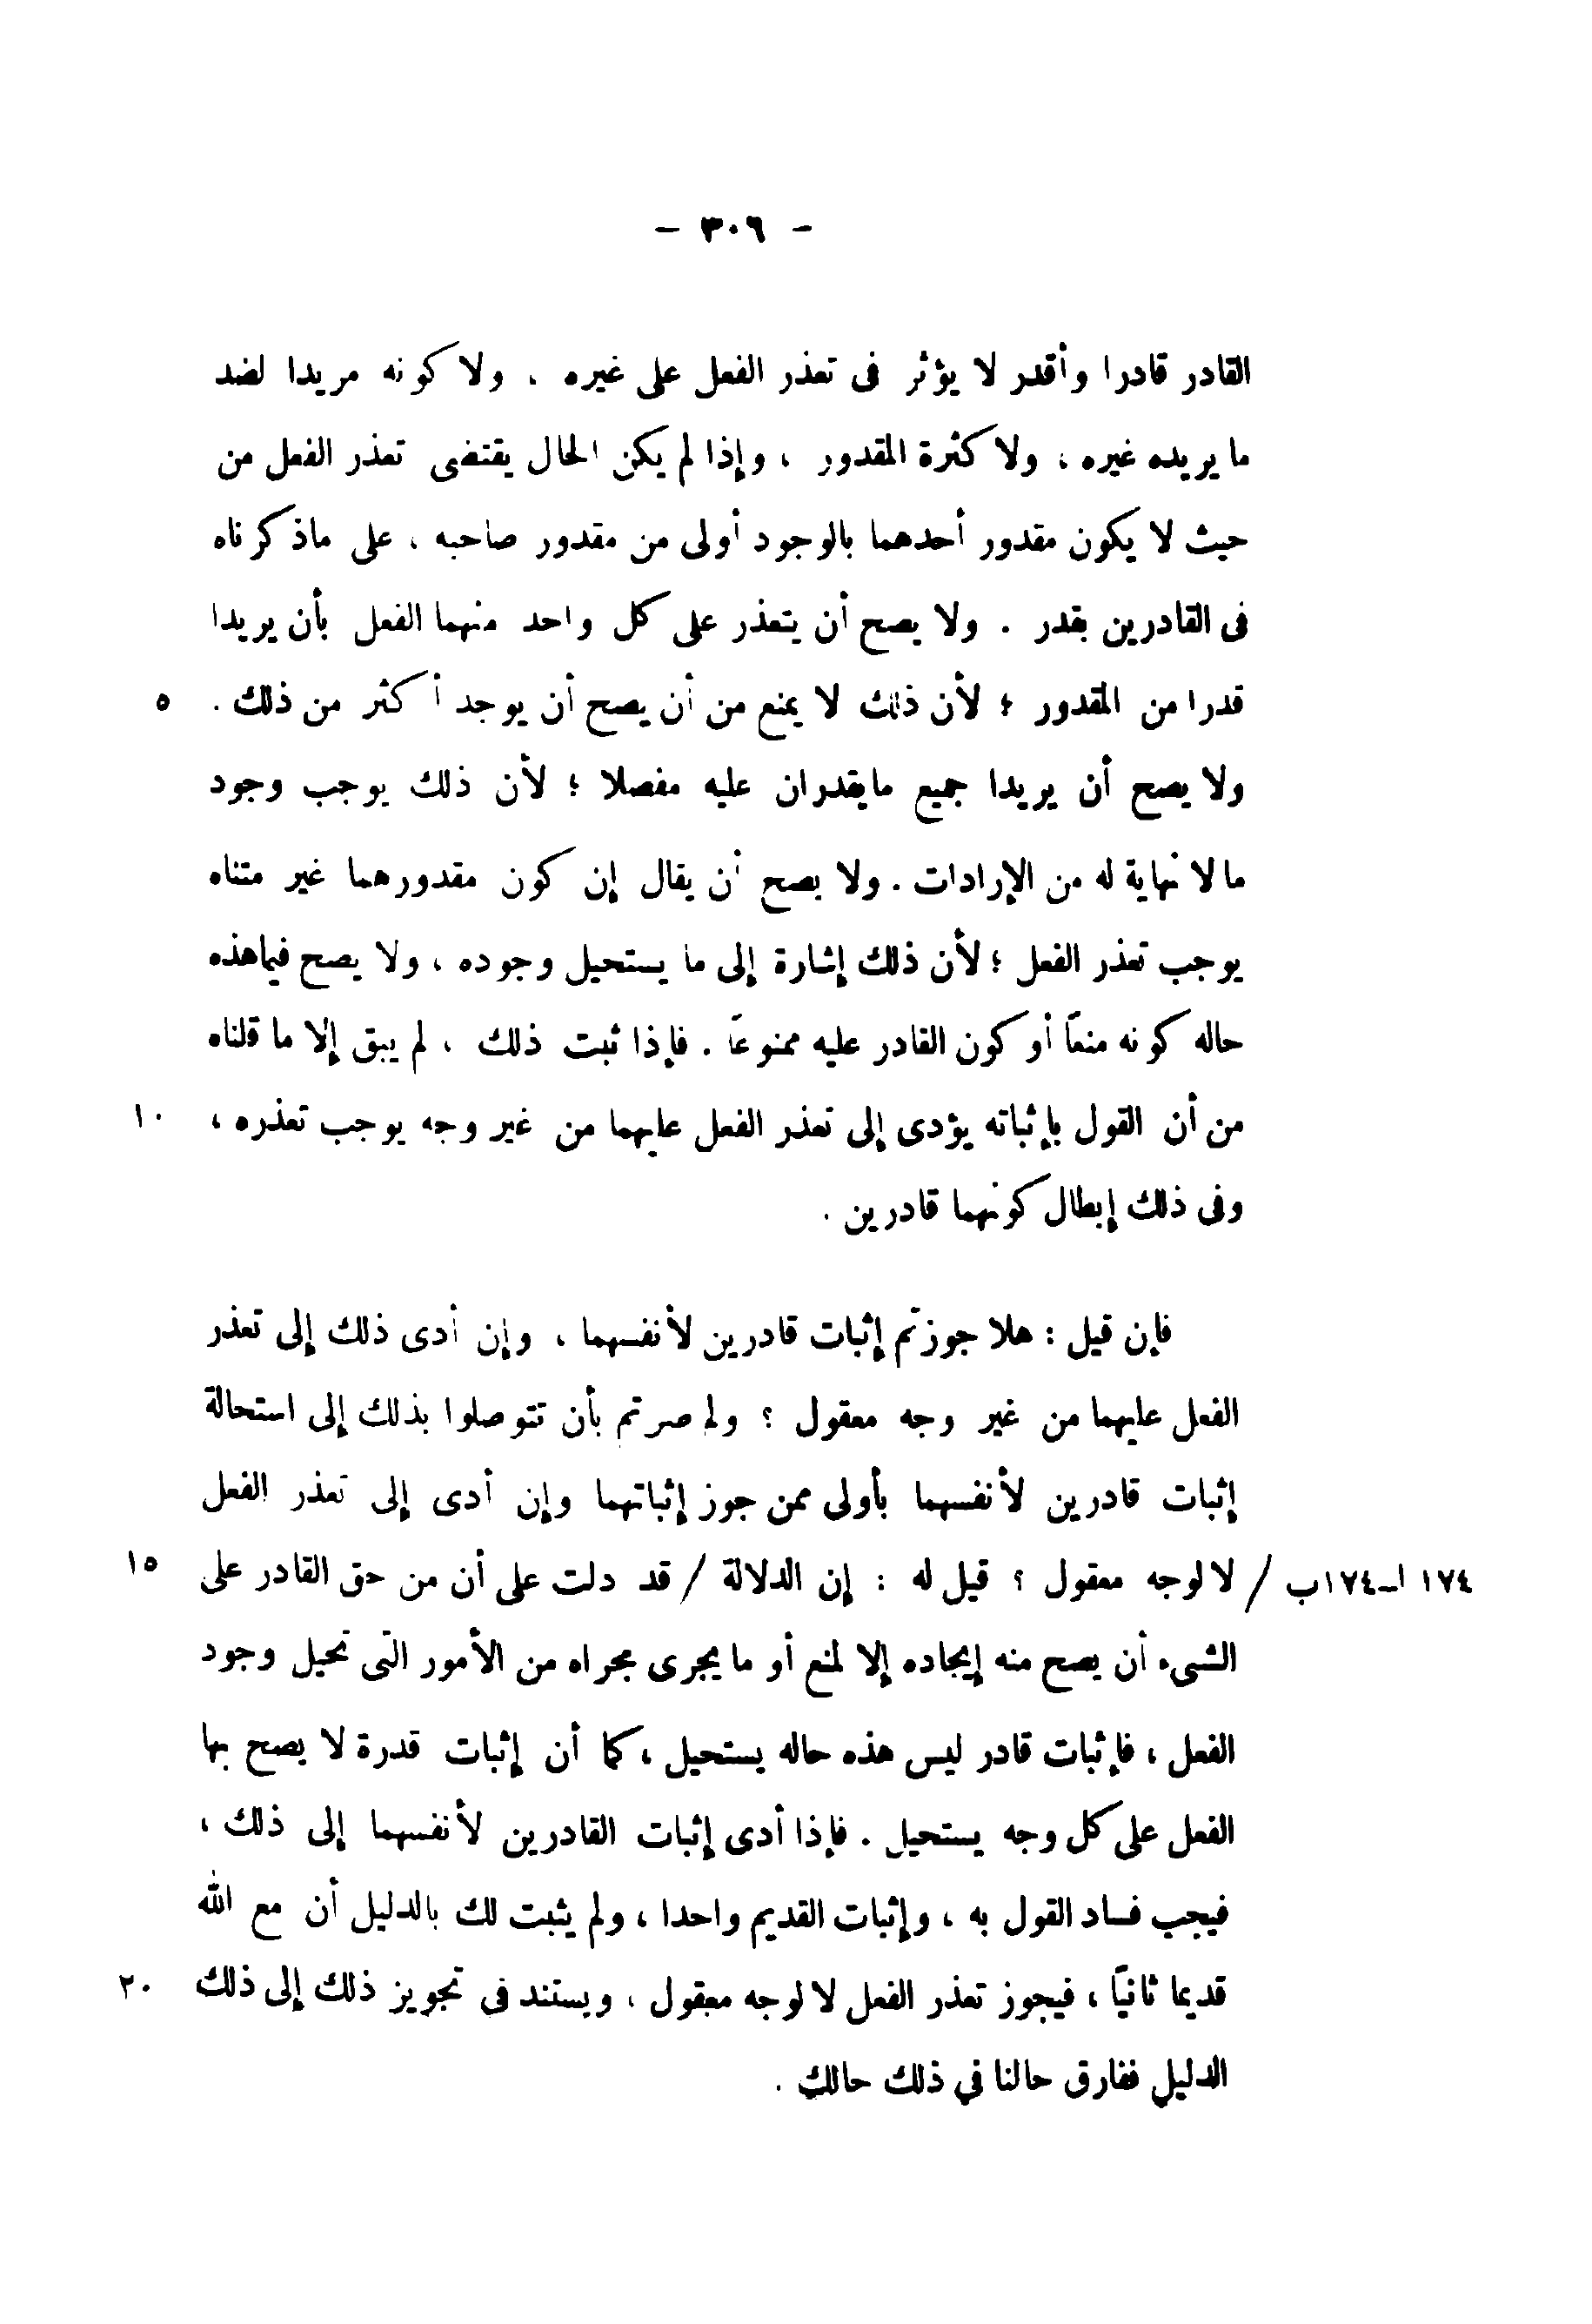 - ٣٠٦ -
القادر قادرا وأقدر لا يؤثر فى تعذر الفعل على غيره ، ولا كونه مريدا لضد
ما يريده غيره ، ولا كثرة المقدور ، وإذا لم يكن الحال يقتضى تعذر الفعل من
حيث لا يكون مقدور أحدهما بالوجود أولى من مقدور صاحبه ، على ماذكرناه
فى القادرين بقدر . ولا يصح أن يتعذر على كل واحد منهما الفعل بأن يريدا
قدرا من المقدور ؛ لأن ذلك لا يمنع من أن يصح أن يوجد أكثر من ذلك . ٥
ولا يصح أن يريدا جميع مايقدران عليه مفصلا ؛ لأن ذلك يوجب وجود
ما لا نهاية له من الإرادات . ولا يصح أن يقال إن كون مقدورهما غير متناه
يوجب تعذر الفعل ؛ لأن ذلك إشارة إلى ما يستحيل وجوده ، ولا يصح فيماهذه
حاله كونه منعًا أو كون القادر عليه ممنوعًا . فإذا ثبت ذلك ، لم يبق إلا ما قلناه
من أن القول بإثباته يؤدى إلى تعذر الفعل عليهما من غير وجه يوجب تعذره ، ١٠
وفى ذلك إبطال كونهما قادرين .
فإن قيل : هلا جوزتم إثبات قادرين لأنفسهما ، وإن أدى ذلك إلى تعذر
الفعل عليهما من غير وجه معقول ؟ ولم صرتم بأن تتوصلوا بذلك إلى استحالة
إثبات قادرين لأنفسهما بأولى ممن جوز إثباتهما وإن أدى إلى تعذر الفعل
١٧٤ ا-١٧٤ب / لا لوجه معقول ؟ قيل له : إن الدلالة / قد دلت على أن من حق القادر على ١٥
الشىء أن يصح منه إيجاده إلا لمنع أو ما يجرى مجراه من الأمور التى تحيل وجود
الفعل ، فإثبات قادر ليس هذه حاله يستحيل ، كما أن إثبات قدرة لا يصح بها
الفعل على كل وجه يستحيل . فإذا أدى إثبات القادرين لأنفسهما إلى ذلك ،
فيجب فساد القول به ، وإثبات القديم واحدا ، ولم يثبت لك بالدليل أن مع الله
قديما ثانيًا ، فيجوز تعذر الفعل لا لوجه معقول ، ويستند فى تجويز ذلك إلى ذلك ٢٠
الدليل ففارق حالنا في ذلك حالك .